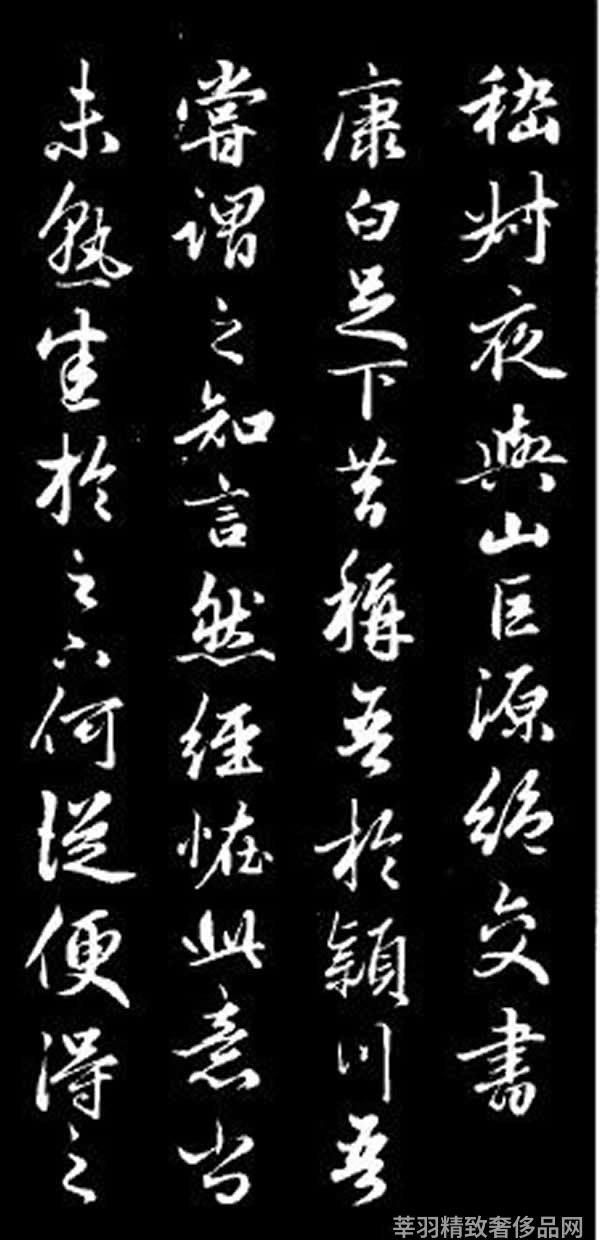 嵇叔夜與山巨源絶交書
康白足下昔稱吾於潁川吾
嘗謂之知言然經恠此意尚
未熟悉於足下何從便得之
莘羽精致奢侈品网